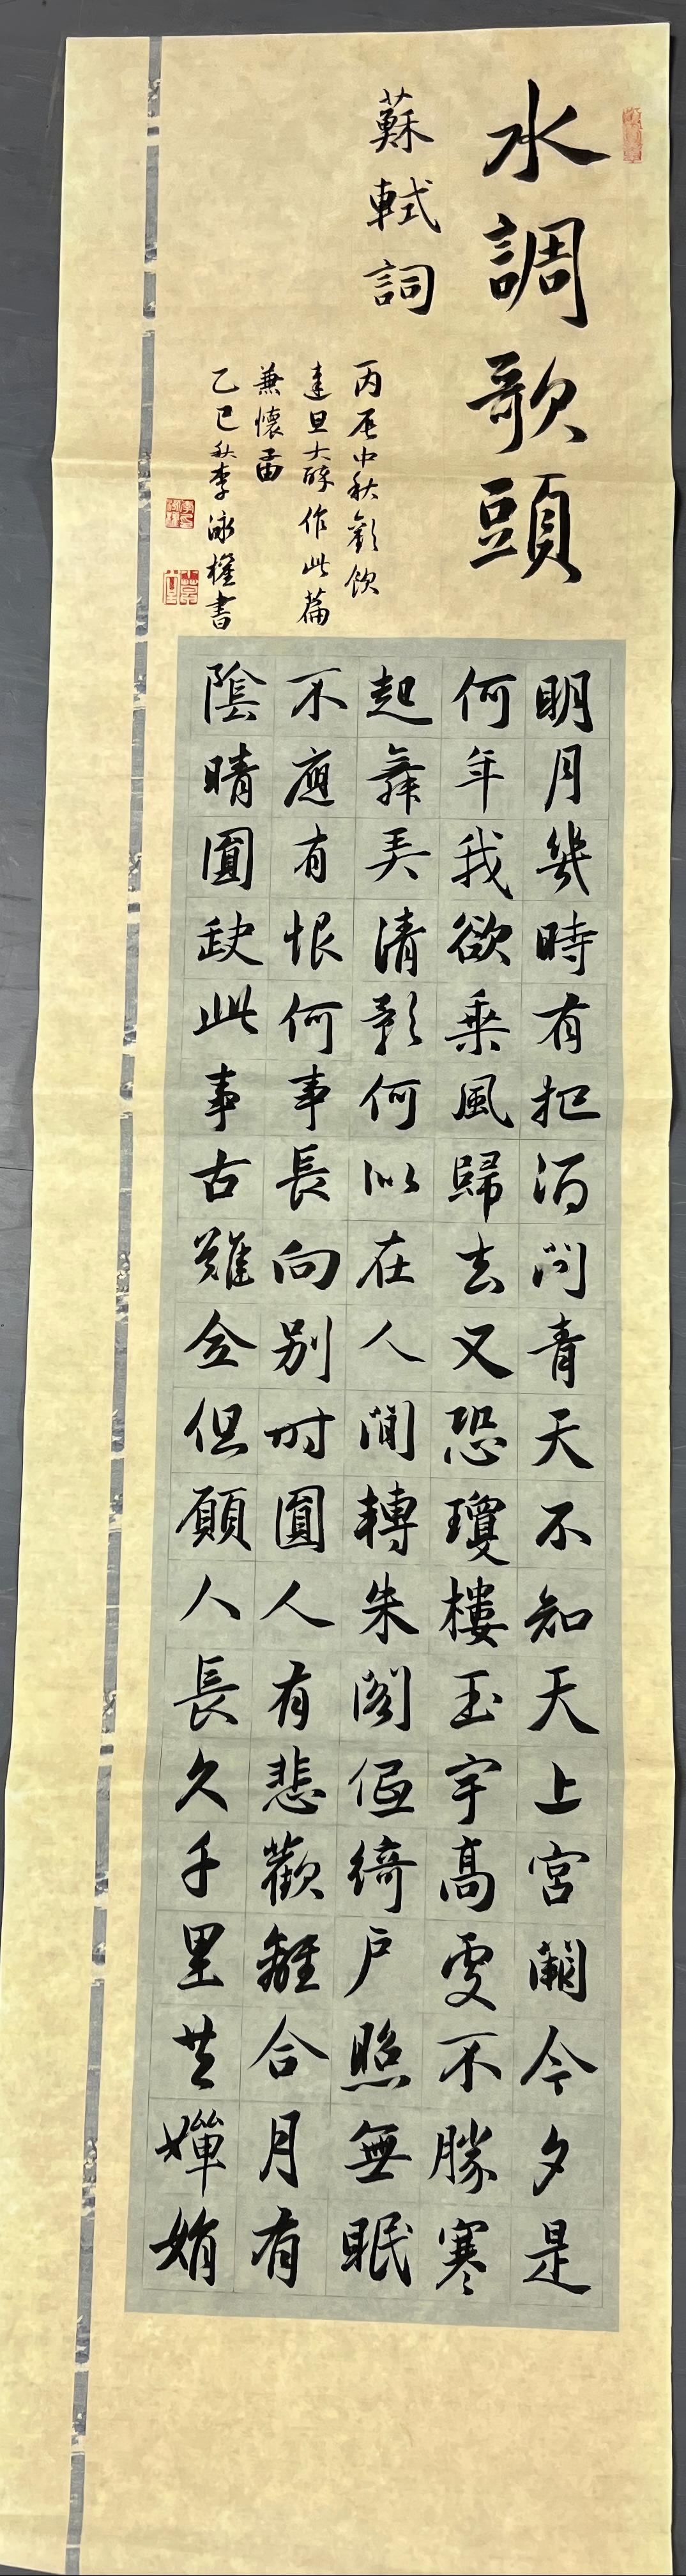 水調歌頭
蘇軾詞
丙辰中秋歡飲
達旦大醉作此篇
兼懷子由
乙巳秋李泳權書
明月幾時有把酒問青天不知天上宮闕今夕是
何年我欲乘風歸去又恐瓊樓玉宇高處不勝寒
起舞弄清影何似在人間轉朱閣低綺戶照無眠
不應有恨何事長向別時圓人有悲歡離合月有
陰晴圓缺此事古難全但願人長久千里共嬋娟